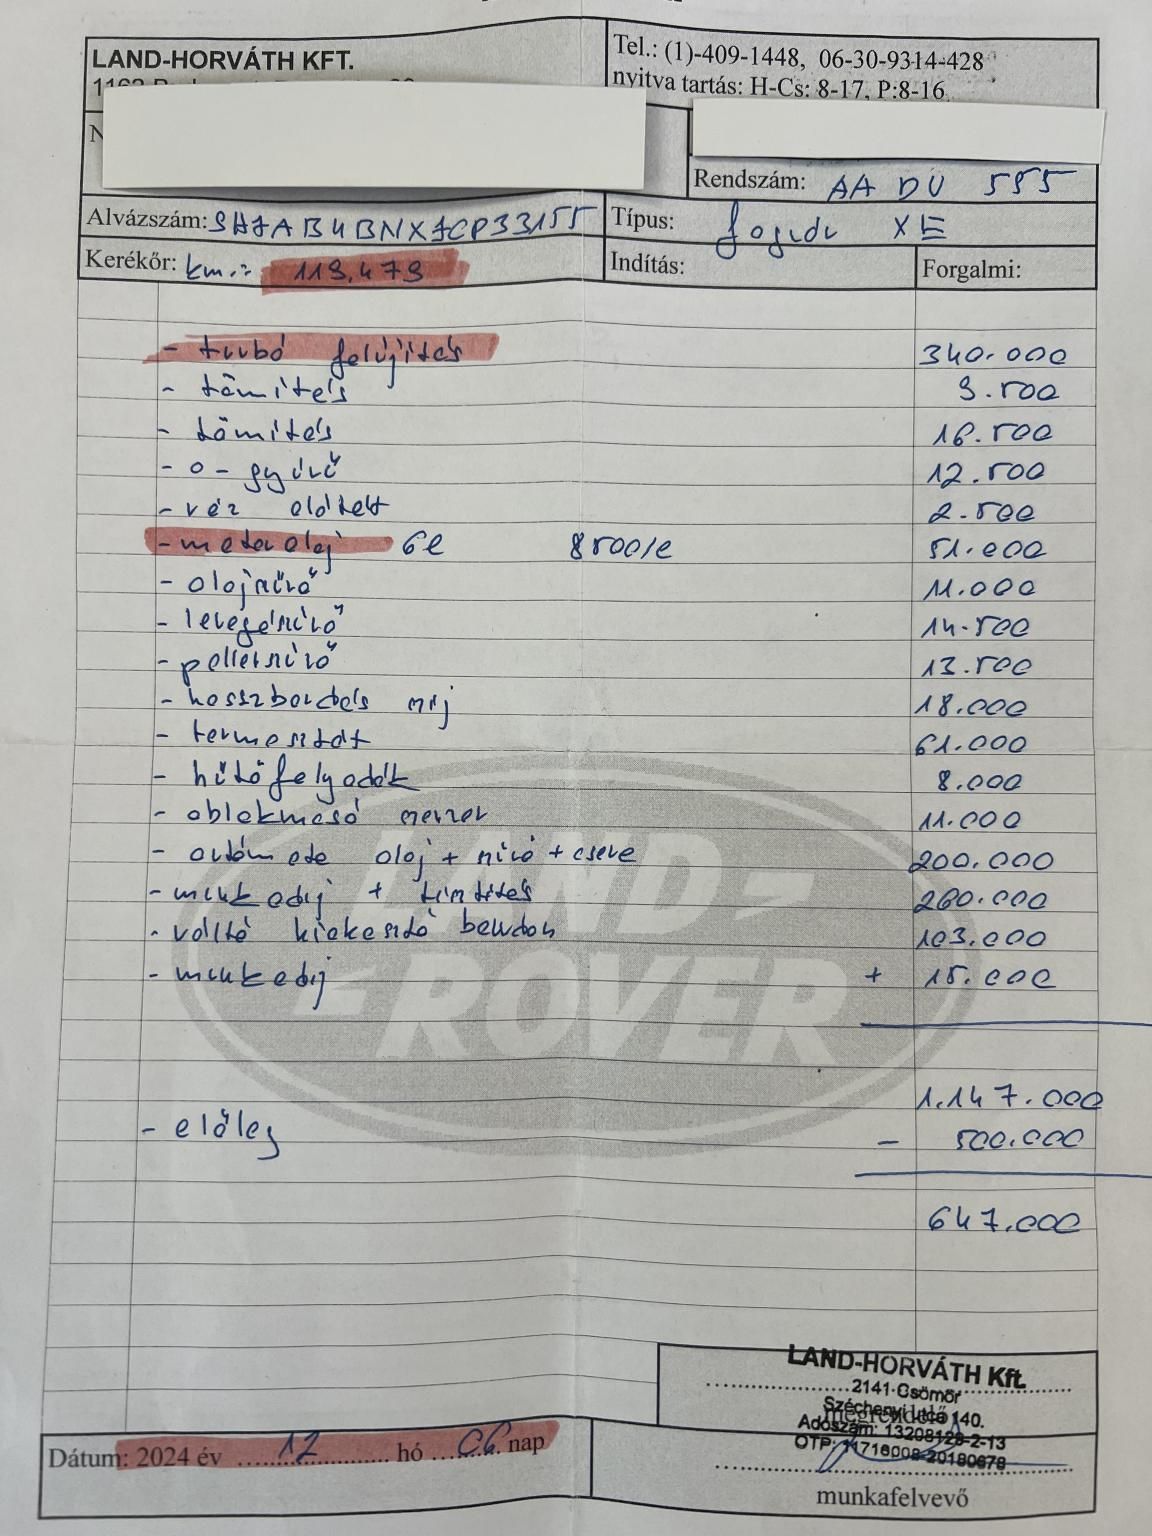 LAND-HORVÁTH KFT.
Tel.: (1)-409-1448, 06-30-9314-428
nyitva tartás: H-Cs: 8-17, P:8-16
Rendszám: AA DU 555
Alvázszám:
Típus: Jaguár XE
Kerékőr: km.: 119.479
Indítás:
Forgalmi:
- turbó felújítás 340.000
- tömítés 9.500
- tömítés 16.500
- o-gyűrű 12.500
- 2.500
- motorolaj 6l 8500/l 51.000
- olajszűrő 11.000
- levegőszűrő 14.500
- pollenszűrő 13.500
- hosszbordás szíj 18.000
- termosztát 61.000
- hűtőfolyadék 8.000
- ablakmosó 11.000
- automata olaj + szűrő + csere 200.000
- munkadíj + tisztítás 260.000
- váltó 103.000
- munkadíj + 15.000
LAND-
ROVER
1.147.000
- előleg - 500.000
647.000
LAND-HORVÁTH Kft.
2141 Csömör
Széchenyi utca 140.
megrendelő
Adószám: 13208129-2-13
OTP: 11716008-20180678
Dátum: 2024 év 12 hó 06. nap
munkafelvevő